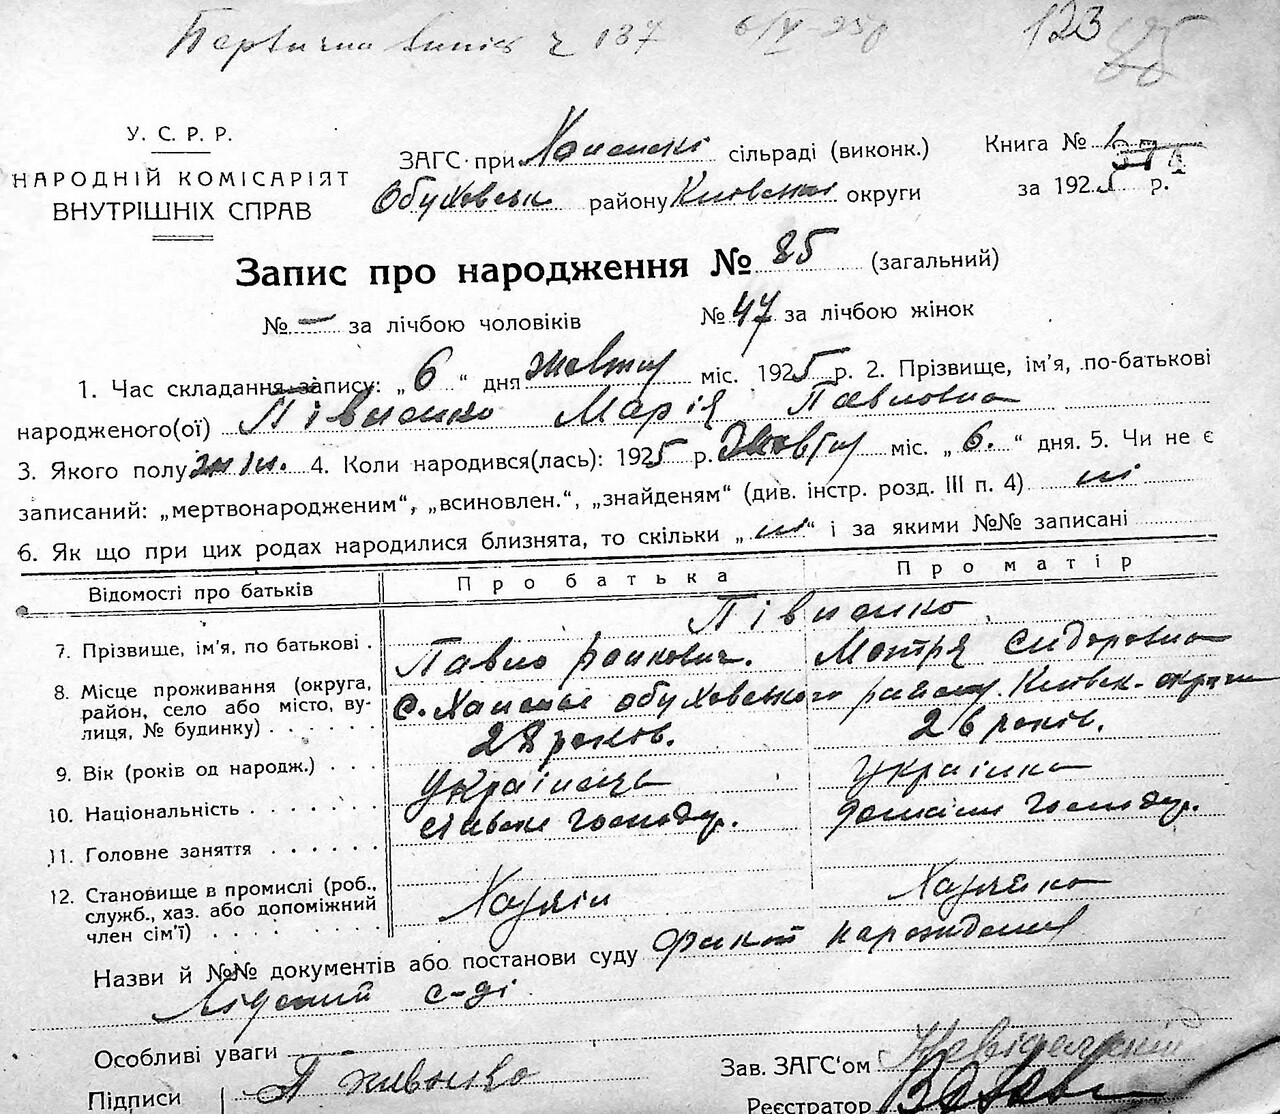 Первична випис ч 137 6/IV-25р 123
85
У. С. Р. Р.
НАРОДНІЙ КОМІСАРІЯТ
ВНУТРІШНІХ СПРАВ
ЗАГС при сільраді (виконк.)
Обухівськ району Київськ округи
Книга № 1 374
за 1925 р.
Запис про народження № 85 (загальний)
№ — за лічбою чоловіків № 47 за лічбою жінок
1. Час складання запису: „ 6 “ дня Жовтня міс. 1925 р. 2. Прізвище, ім’я, по-батькові
народженого(ої) Півненко Марія Павловна
3. Якого полу жін. 4. Коли народився(лась): 1925 р. Жовтня міс. „ 6. “ дня. 5. Чи не є
записаний: „мертвонародженим“, „всиновлен.“, „знайденям“ (див. інстр. розд. III п. 4) ні
6. Як що при цих родах народилися близнята, то скільки „ ні “ і за якими №№ записані
Відомості про батьків Про батька Про матір
Півненко
7. Прізвище, ім’я, по батькові . Павло . Мотря Сидоровна
8. Місце проживання (округа, район, село або місто, вулиця, № будинку) с. обуховського району Київськ. округи
28 років. 26 років.
9. Вік (років од народж.) . . . Українець Українка
10. Національність . . . . . . сільске господар. домашнє господар.
11. Головне заняття . . . . . .
12. Становище в промислі (роб., служб., хаз. або допоміжний член сім’ї) . . . . . . . . Хазяїн Хазяйка
Назви й №№ документів або постанови суду факт народження
с-ді
Особливі уваги
Підписи П
Зав. ЗАГС‘ом
Реєстратор